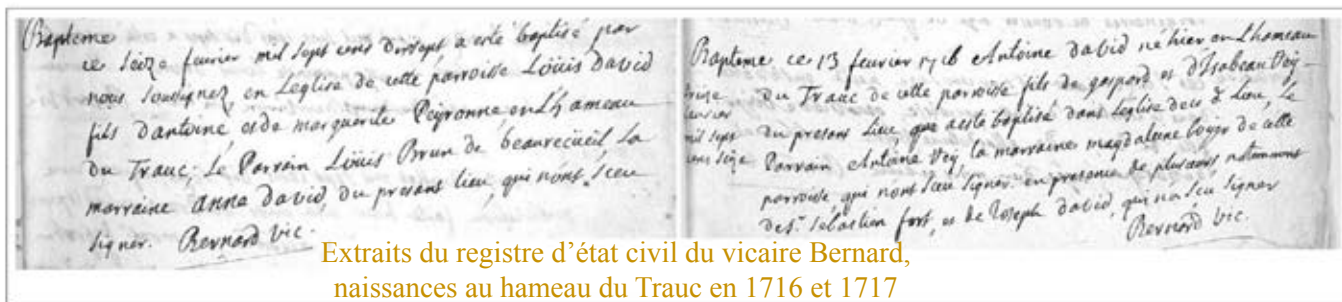 Bapteme
ce seize feuvrier mil sept cens dixsept a esté baptisé par
nous soussignez, en Leglise de cette parroisse Loüis david
fils d'antoine, et de marguerite Peyronne, en L'hameau
du Trauc; Le Parrain Loüis Brun de beaurecüeil, La
marraine anna david, du presant lieu, qui n'ont sceu
signer. Bernard vic.
Bapteme ce 13 feuvrier 1716 Antoine david né hier en L'hameau
treize
feuvrier
mil sept
cens seize
du Trauc de cette parroisse fils de gaspard et d'Isabeau Vey
du presant Lieu, que a esté baptisé dans Leglise du Lieu, Le
Parrain Antoine Vey, la marraine magdaleine de cette
parroisse, qui n'ont sceu signer. en presance de plusieurs notamment
de Sr. sebastien fort, et de Joseph david, qui n'a sceu signer
Bernard vic.
Extraits du registre d'état civil du vicaire Bernard,
naissances au hameau du Trauc en 1716 et 1717